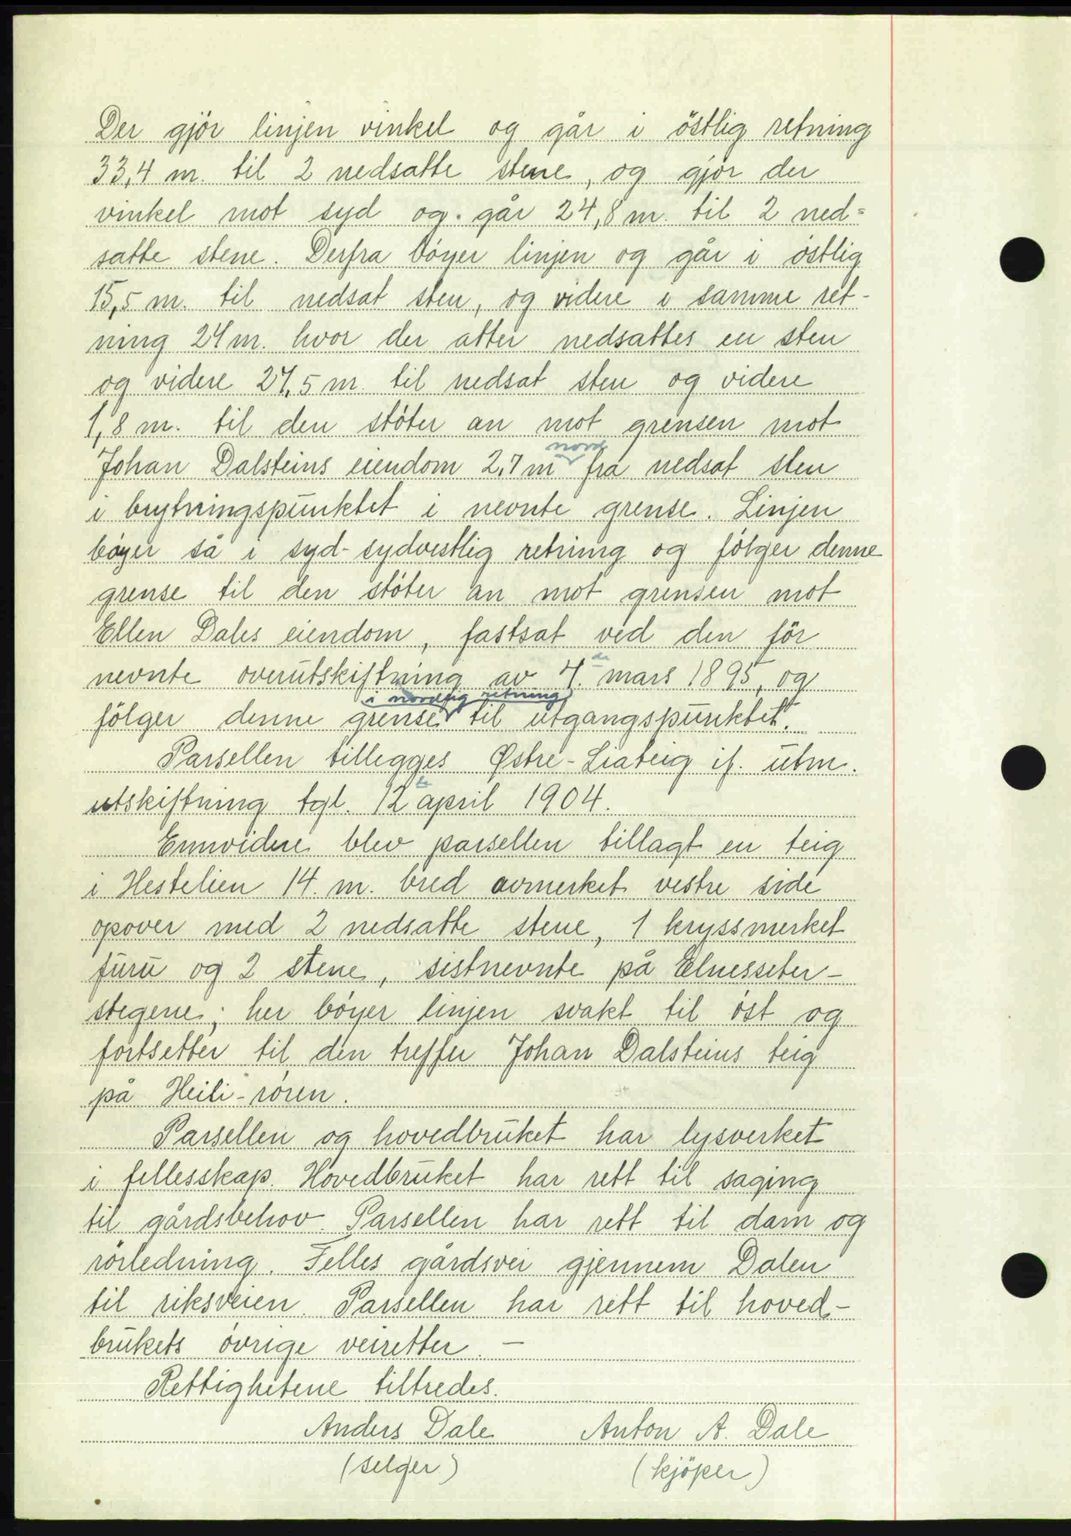 Der gjör linjen vinkel og går i östlig retning
33,4 m. til 2 nedsatte stene, og gjör der
vinkel mot syd og går 24,8 m. til 2 ned=
satte stene. Derfra böyer linjen og går i östlig
15,5 m. til nedsat sten, og videre i samme ret-
ning 24 m. hvor der atter nedsattes en sten
og videre 27,5 m. til nedsat sten og videre
1,8 m. til den stöter an mot grensen mot
nord
Johan Dalsteins eiendom 2,7 m fra nedsat sten
i brytningspunktet i nevnte grense. Linjen
böyer så i syd-sydvestlig retning og fölger denne
grense til den stöter an mot grensen mot
Ellen Dales eiendom, fastsat ved den för
nevnte overutskiftning av 4. de mars 1895, og
i nordlig retning
fölger denne grense til utgangspunktet.
Parsellen tillegges Østre-Liateig if. utm.
utskiftning tgl. 12 te april 1904.
Ennvidere blev parsellen tillagt en teig
i Hestelien 14. m. bred avmerket vestre side
opover med 2 nedsatte stene, 1 kryssmerket
furu og 2 stene, sistnevnte på Elnesseter-
stegene; her böyer linjen svakt til öst og
fortsetter til den treffer Johan Dalsteins teig
på Heili-rören.
Parsellen og hovedbruket har lysverket
i fellesskap. Hovedbruket har rett til saging
til gårdsbehov. Parsellen har rett til dam og
rörledning. Felles gårdsvei gjennem Dalen
til riksveien. Parsellen har rett til hoved-
brukets övrige veiretter. —
Rettighetene tiltredes.
Anders Dale Anton A. Dale
(selger) (kjöper)